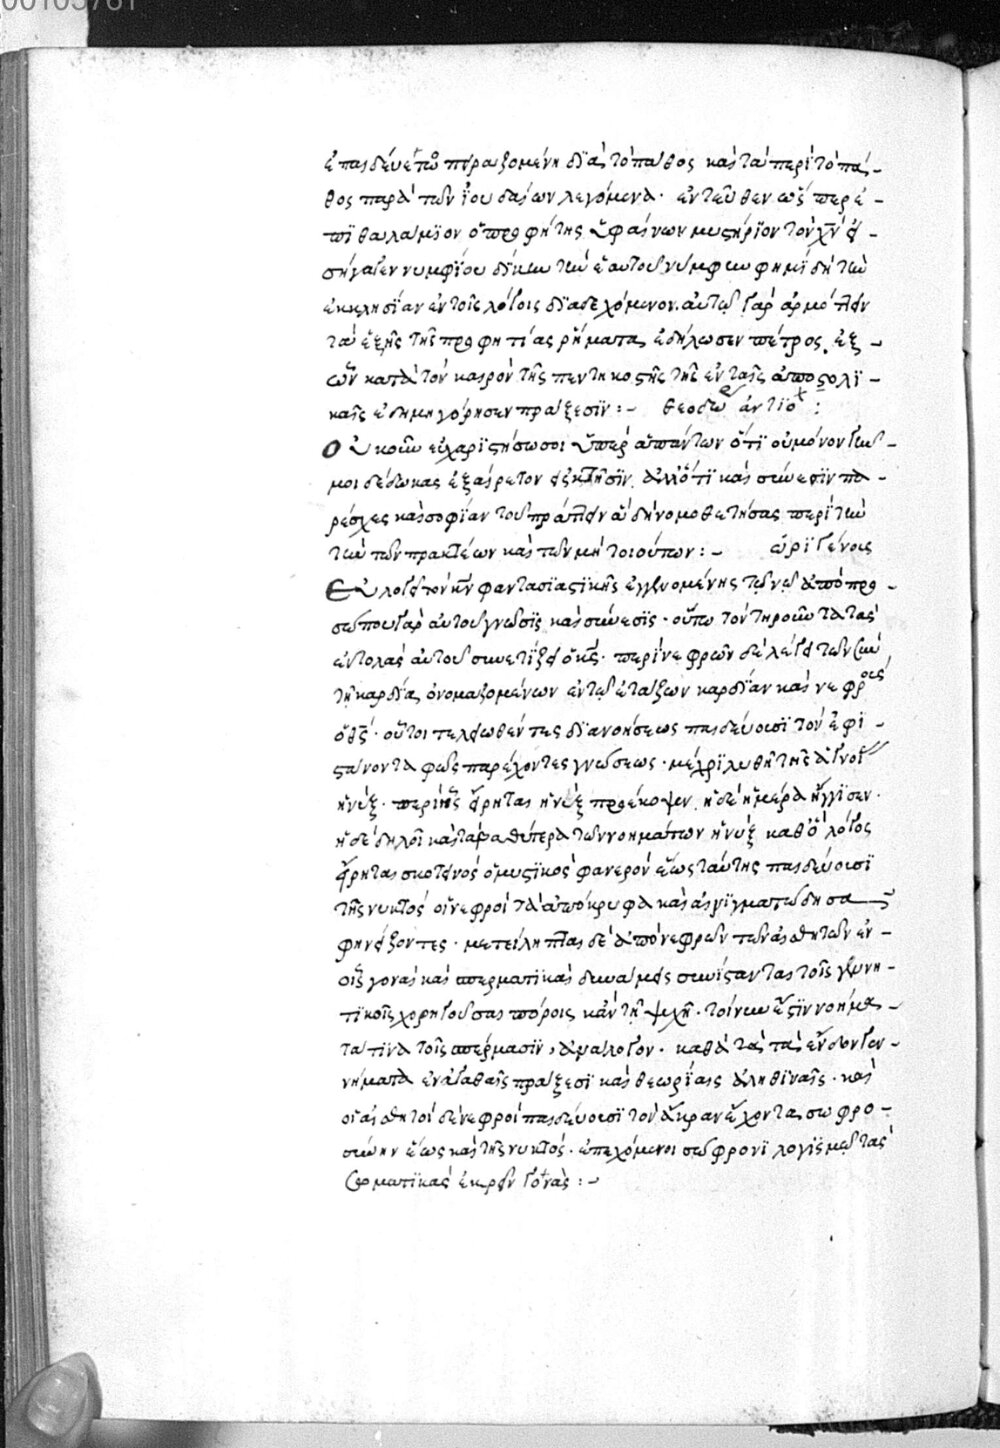 00105761
ἐπαιδεύετο πειραζομένη διὰ τὸ πάθος καὶ τὰ περὶ τὸ πά-
θος παρὰ τῶν ἰουδαίων λεγόμενα· ἐντεῦθεν ὥσπερ ἐ-
πιθαλάμιον ὁ προφήτης ὑφαίνων μυστήριον τὸν χν εἰ-
σήγαγεν νυμφίου δίκην τὴν ἑαυτοῦ νύμφην φημὶ δὴ τὴν
ἐκκλησίαν ἐν τοῖς λόγοις διαδεχόμενον. αὐτῷ γὰρ ἁρμόττειν
τὰ ἑξῆς τῆς προφητείας ῥήματα ἐδήλωσεν πέτρος, ἐξ
ὧν κατὰ τὸν καιρὸν τῆς πεντηκοστῆς τῆς ἐν ταῖς ἀποστολι-
καῖς ἐδημηγόρησεν πράξεσιν:- θεοδώρ ἀντιοχ:
Οὐκοῦν εὐχαριστήσω σοι ὑπὲρ ἁπάντων ὅτι οὐ μόνον
μοι δέδωκας ἐξαίρετον ἀλλ' ὅτι καὶ σύνεσιν πα-
ρέσχες καὶ σοφίαν τοῦ πράττειν ἃ δὴ νομοθετήσας περὶ τὴν
τὴν τῶν πρακτέων καὶ τῶν μὴ τοιούτων:- ὠριγένους
ἐγγενομένης τῷ νῷ ἀπὸ προ-
σώπου γὰρ αὐτοῦ γνῶσις καὶ σύνεσις· οὕτω τὸν τηροῦντα τὰς
ἐντολὰς αὐτοῦ συνετίζει ὁ κς· περὶ νεφρῶν δὲ λέγει τῶν σὺν
τῇ καρδίᾳ ὀνομαζομένων ἐν τῷ ἐτάζων καρδίαν καὶ νεφροὺς
ὁ θς· οὗτοι τελειωθέντες διανοήσεως παιδεύουσι τὸν ἐφι-
στάνοντα φῶς παρέχοντες γνώσεως· μέχρι λυθῇ τῆς ἀγνοί
ἡ νύξ· περὶ ἧς εἴρηται ἡ νὺξ προέκοψεν, ἡ δὲ ἡμέρα ἤγγισεν·
ἡ δὲ δηλοῖ καὶ τὰ βαθύτερα τῶν νοημάτων ἡ νὺξ καθ' ὃ λόγος
εἴρηται σκοτεινὸς ὁ μυστικὸς φανερὸν ἕως ταύτης παιδεύουσι
τῆς νυκτὸς οἱ νεφροὶ τὰ ἀπόκρυφα καὶ αἰνιγματώδη σα-
φηνίζοντες· μετείληπται δὲ ἀπὸ νεφρῶν τῶν αἰσθητῶν ἐν
οἷς γονὰς καὶ σπερματικὰς δυνάμεις συνίστανται τοῖς γεννη-
τικοῖς χορηγοῦσαι πόροις κἀν τῇ ψυχῇ· τοίνυν ἔστιν νοήμα-
τα τινὰ τοῖς σπέρμασιν, ἀνάλογον· καθὰ τὰ τὰς εὐδ γεν-
νήματα ἐν ἀγαθαῖς πράξεσι καὶ θεωρίαις ἀληθιναῖς· καὶ
οἱ αἰσθητοὶ δὲ νεφροὶ παιδεύουσι τὸν ἄκραν ἔχοντα σωφρο-
σύνην ἕως καὶ τῆς νυκτὸς· ἐπεχόμενοι σώφρονι λογισμῷ τὰς
σπερματικὰς ἐκρεῖν γονὰς:-